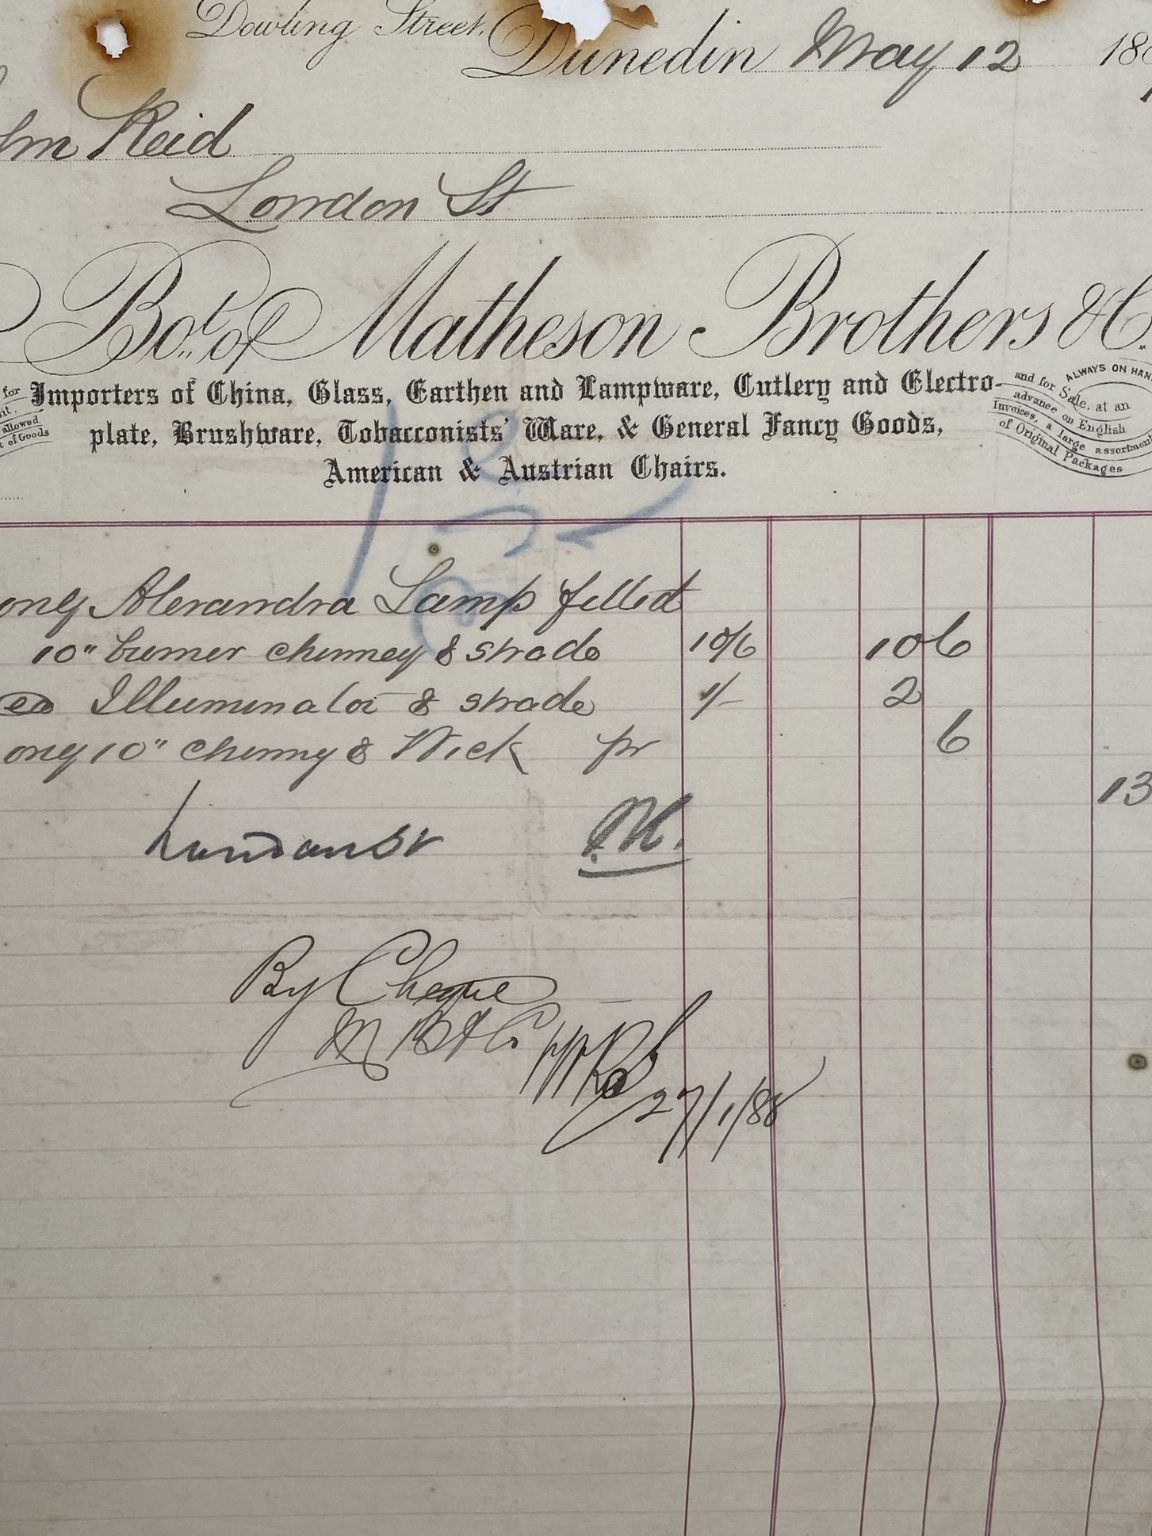 Dowling Street,
Dunedin May 12 188
Reid
London St
Bot. of Matheson Brothers & C
for Importers of China, Glass, Earthen and Lampware, Cutlery and Electro-
plate, Brushware, Tobacconists' Ware, & General Fancy Goods,
American & Austrian Chairs.
allowed
of Goods
ALWAYS ON HAN
and for Sale, at an
advance on English
Invoices, a large assortment
of Original Packages
only Alexandra Lamp filled
10" burner chimney & shade 10/6 10 6
Illuminator & shade 1/- 2
only 10" chimny & Wick pr 6
13
London St J.M.
By Cheque
M B & Co
27/1/88